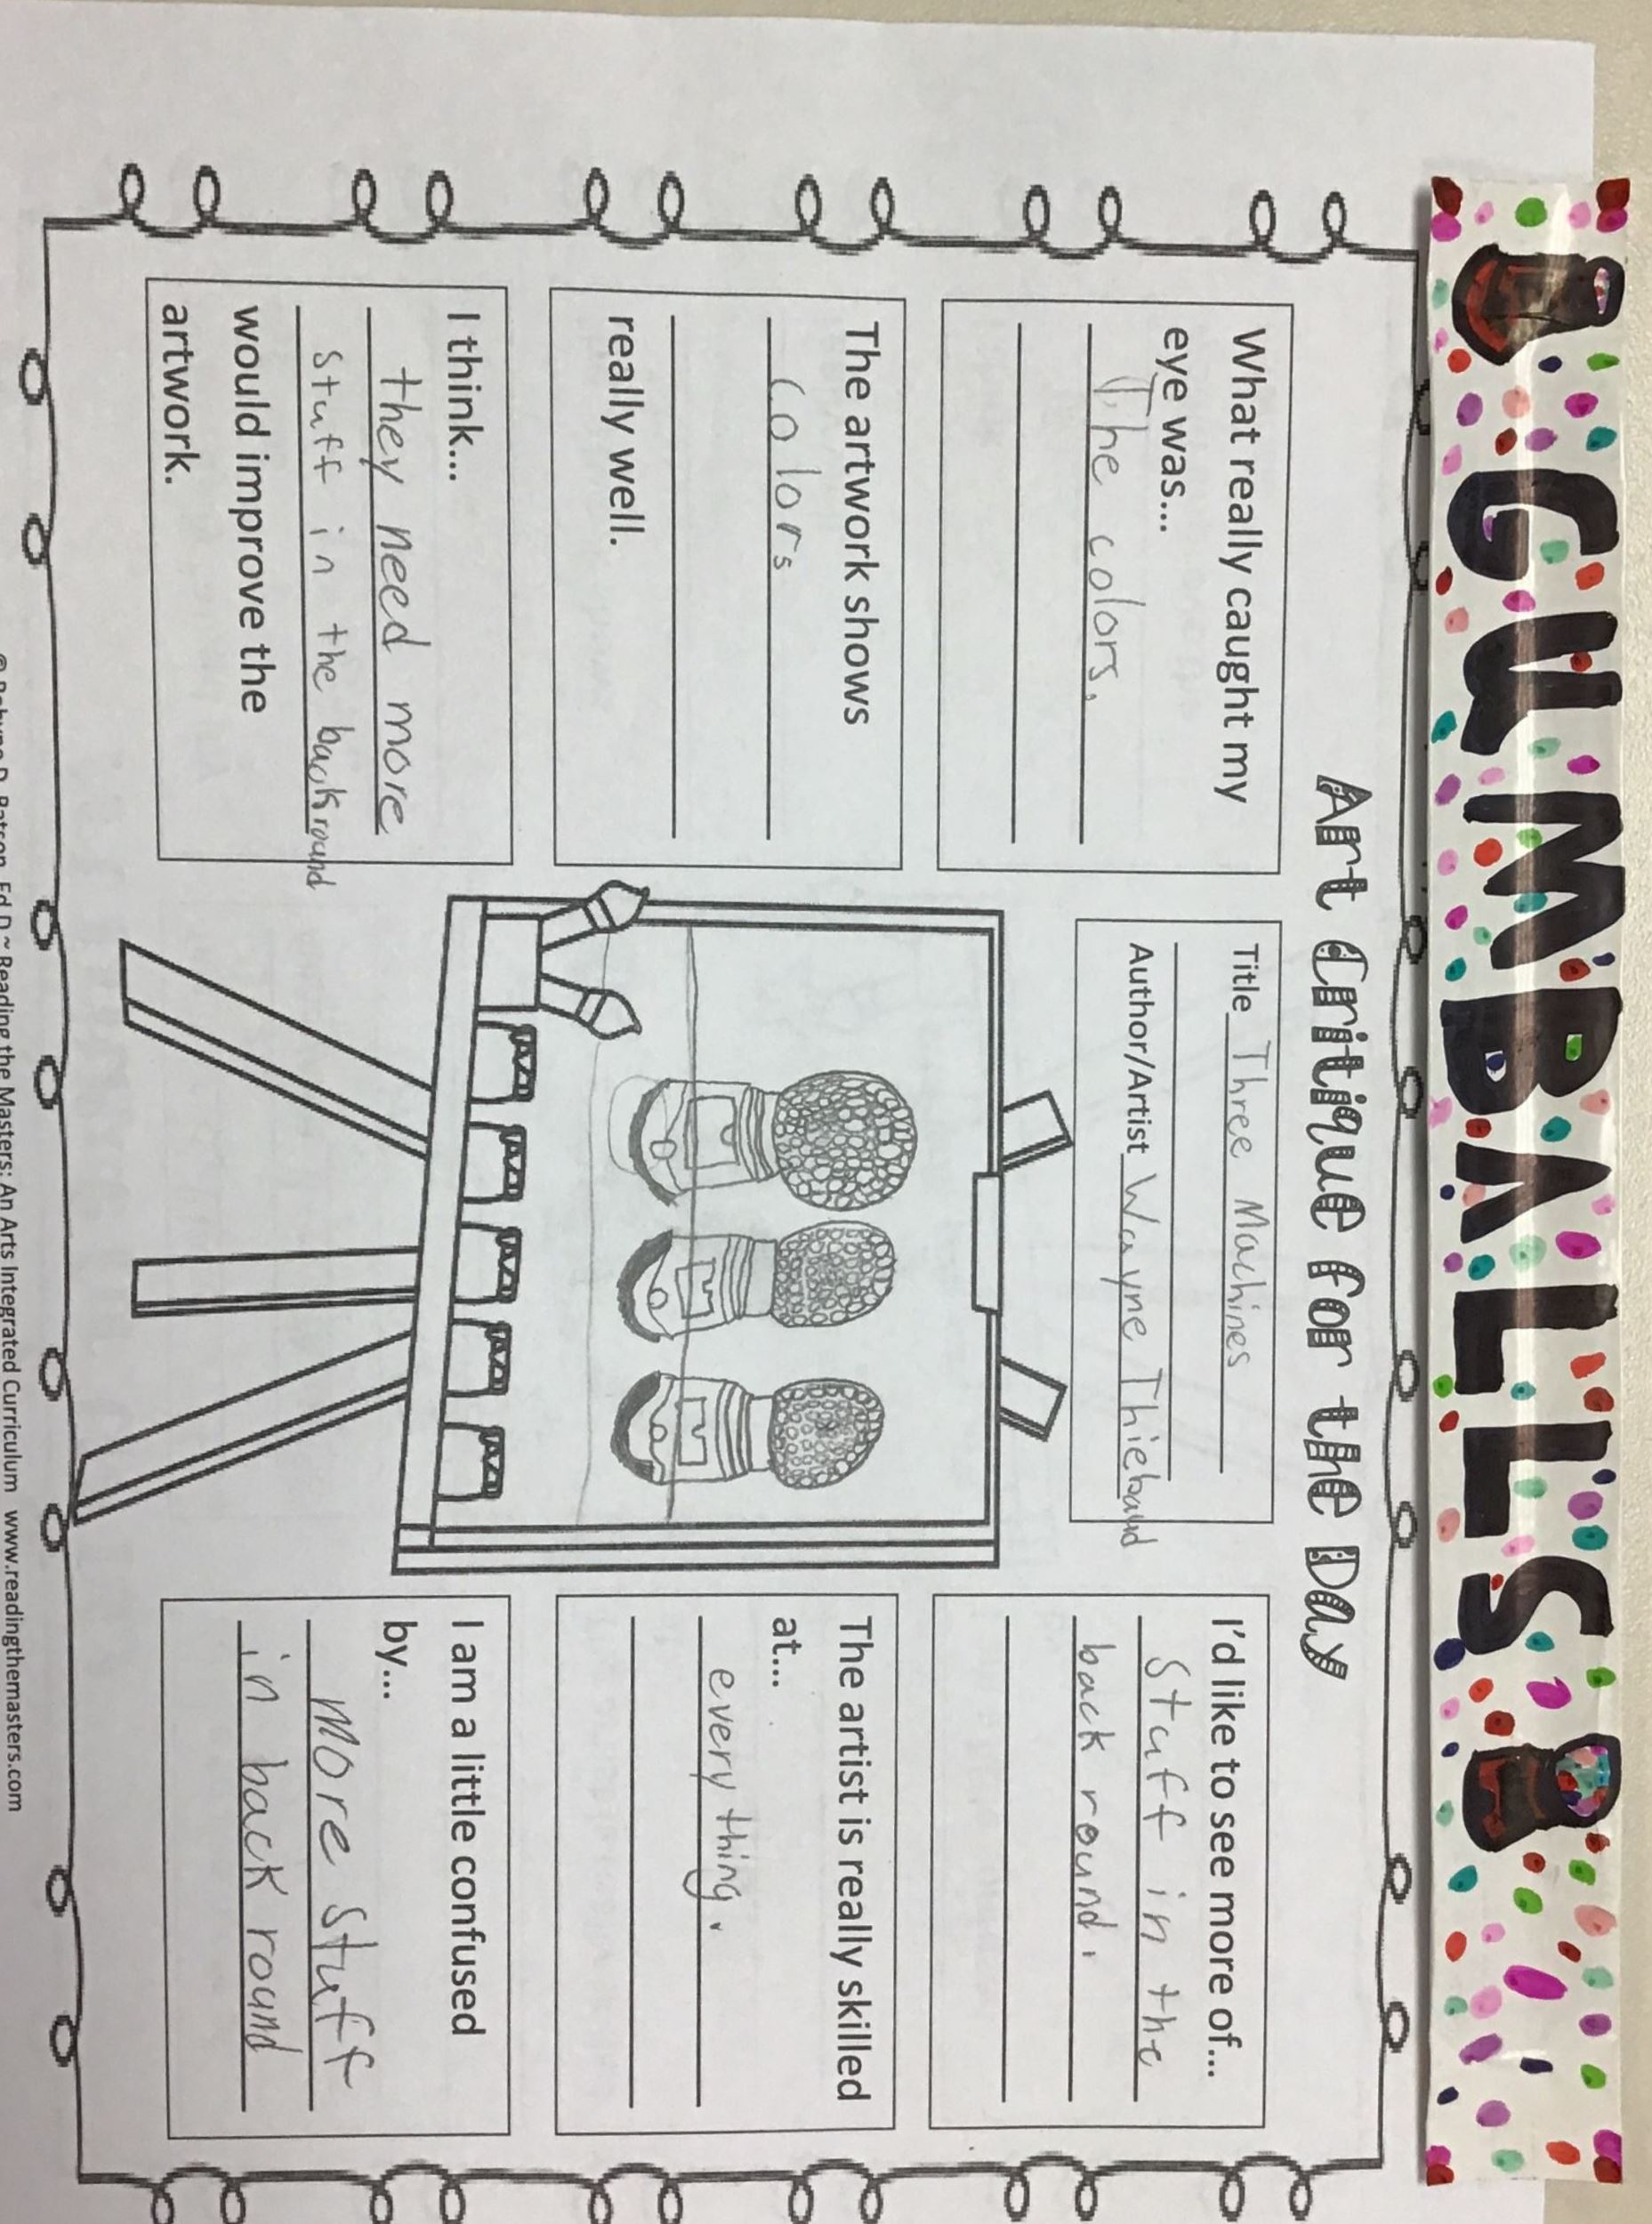 GUMBALLS
Art Critique for the Day
What really caught my
eye was...
The colors.
The artwork shows
colors
really well.
I think...
they need more
stuff in the backround
would improve the
artwork.
Title Three Machines
Author/Artist Wayne Thiebaud
I'd like to see more of...
stuff in the
back round.
The artist is really skilled
at...
every thing.
I am a little confused
by...
more stuff
in back round
Ed.D ~ Reading the Masters: An Arts Integrated Curriculum www.readingthemasters.com